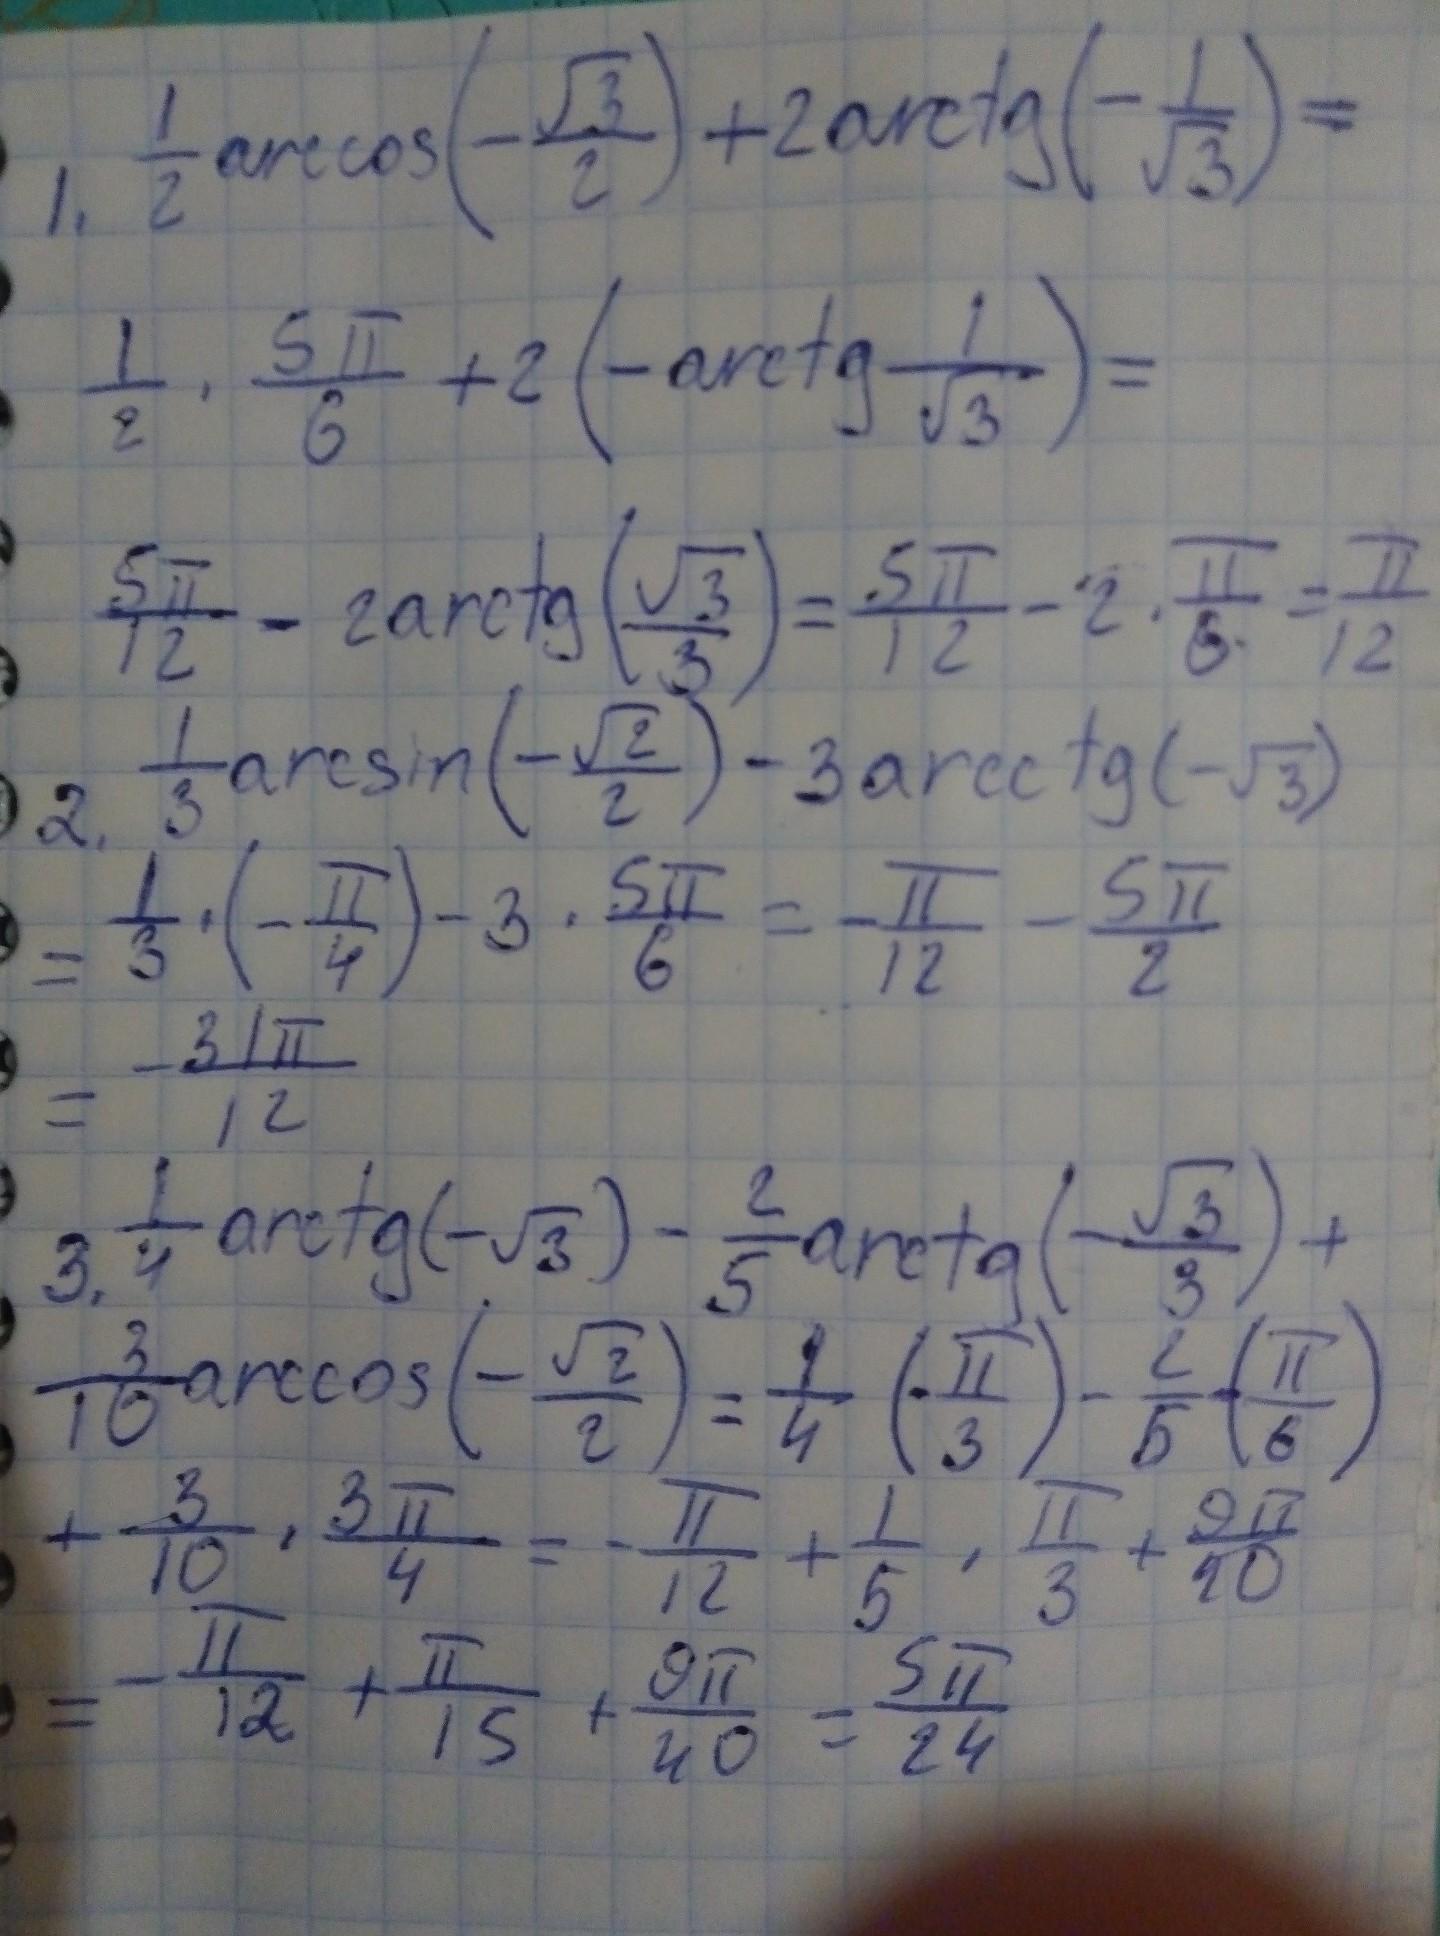 1. 1/2 arccos(-√3/2)+2arctg(-1/√3)=
1/2 · 5π/6 +2(-arctg 1/√3)=
5π/12 - 2arctg(√3/3)=5π/12 - 2·π/6=π/12
2. 1/3 arcsin(-√2/2)-3arcctg(-√3)
= 1/3 · (-π/4) - 3 · 5π/6 = -π/12 - 5π/2
= -31π/12
3. 1/4 arctg(-√3) - 2/5 arctg(-√3/3)+
3/10 arccos(-√2/2)=1/4 (-π/3)-2/5-(π/6)
+ 3/10 · 3π/4 = -π/12 + 1/5 · π/3 + 9π/40
= -π/12 + π/15 + 9π/40 = 5π/24